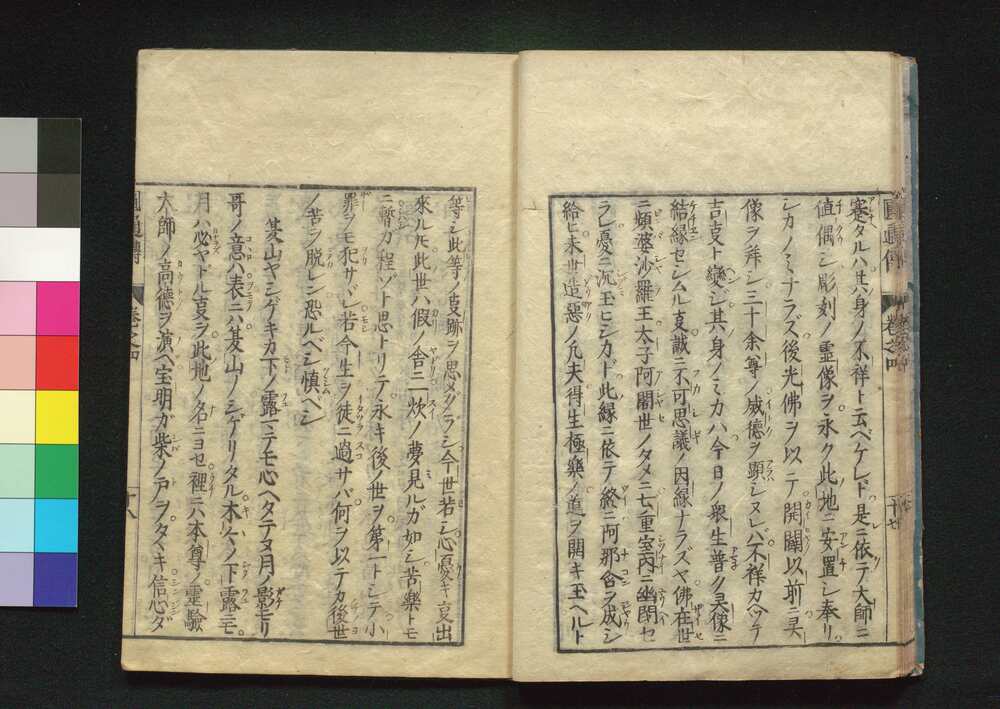 蹇タルハ其身ノ不祥ト云ベケレド是ニ依テ大師ニ
値偶シ彫刻ノ霊像ヲ永ク此地ニ安置シ奉リ
シカノミナラズ後光佛ヲ以テ開闢以前ニ㚑
像ヲ拜シ三十余尊ノ威德ヲ顕シヌレバ不祥カヘテ
吉支ト變ジ其身ノミカハ今日ノ衆生普ク㚑像ニ
結縁セシムル支誠ニ不可思議ノ因縁ナラズヤ佛在世
ニ頻婆沙羅王太子阿闍世ノタメニ七重室内ニ幽閉セ
ラレ憂ニ沉玉ヒシカド此縁ニ依テ終ニ阿那含ヲ成シ
給ヒ未世造惡ノ凡夫得生極樂ノ道ヲ開キ玉ヘルト
卷之四
十七
等シ此等ノ支跡ヲ思メグラシ今世若シ心憂キ支出
來ルトモ此世ハ假ノ舎一炊ノ夢見ルガ如シ苦樂トモ
ニ暫カ程ゾト思トリテ永キ後ノ世ヲ第一トシテ小
罪ヲモ犯サヾレ若今生ヲ徒ニ過サバ何ヲ以テカ後世
ノ苦ヲ脱レン恐ルベシ慎ベシ
山ヤシゲキカ下ノ露マテモ心ヘタテヌ月ノ影モリ
哥ノ意ハ表ニハ山ノシゲリタル木々ノ下露ニモ
月ハ必ヤドル支ヲ此地ノ名ニヨセ裡ニハ本尊ノ霊驗
大師ノ高德ヲ演ベ宝明ガ柴ノ戸ヲタヽキ信心ダ
卷之四
十八